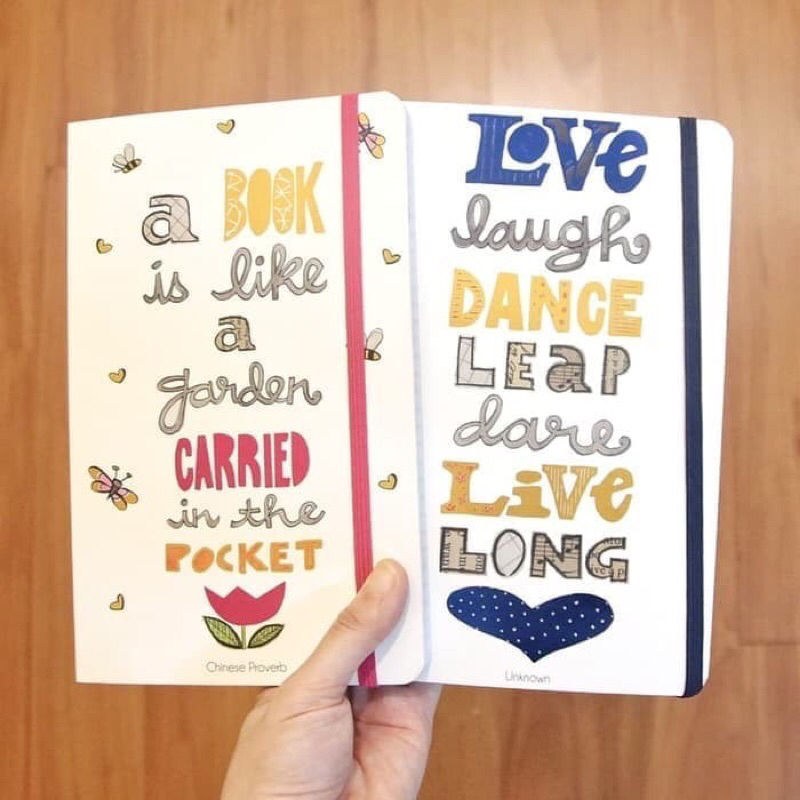 a BOOK
is like
a
garden
CARRIED
in the
POCKET
Chinese Proverb
LOVe
laugh
DANCE
LEaP
dare
LiVe
LONG
Unknown